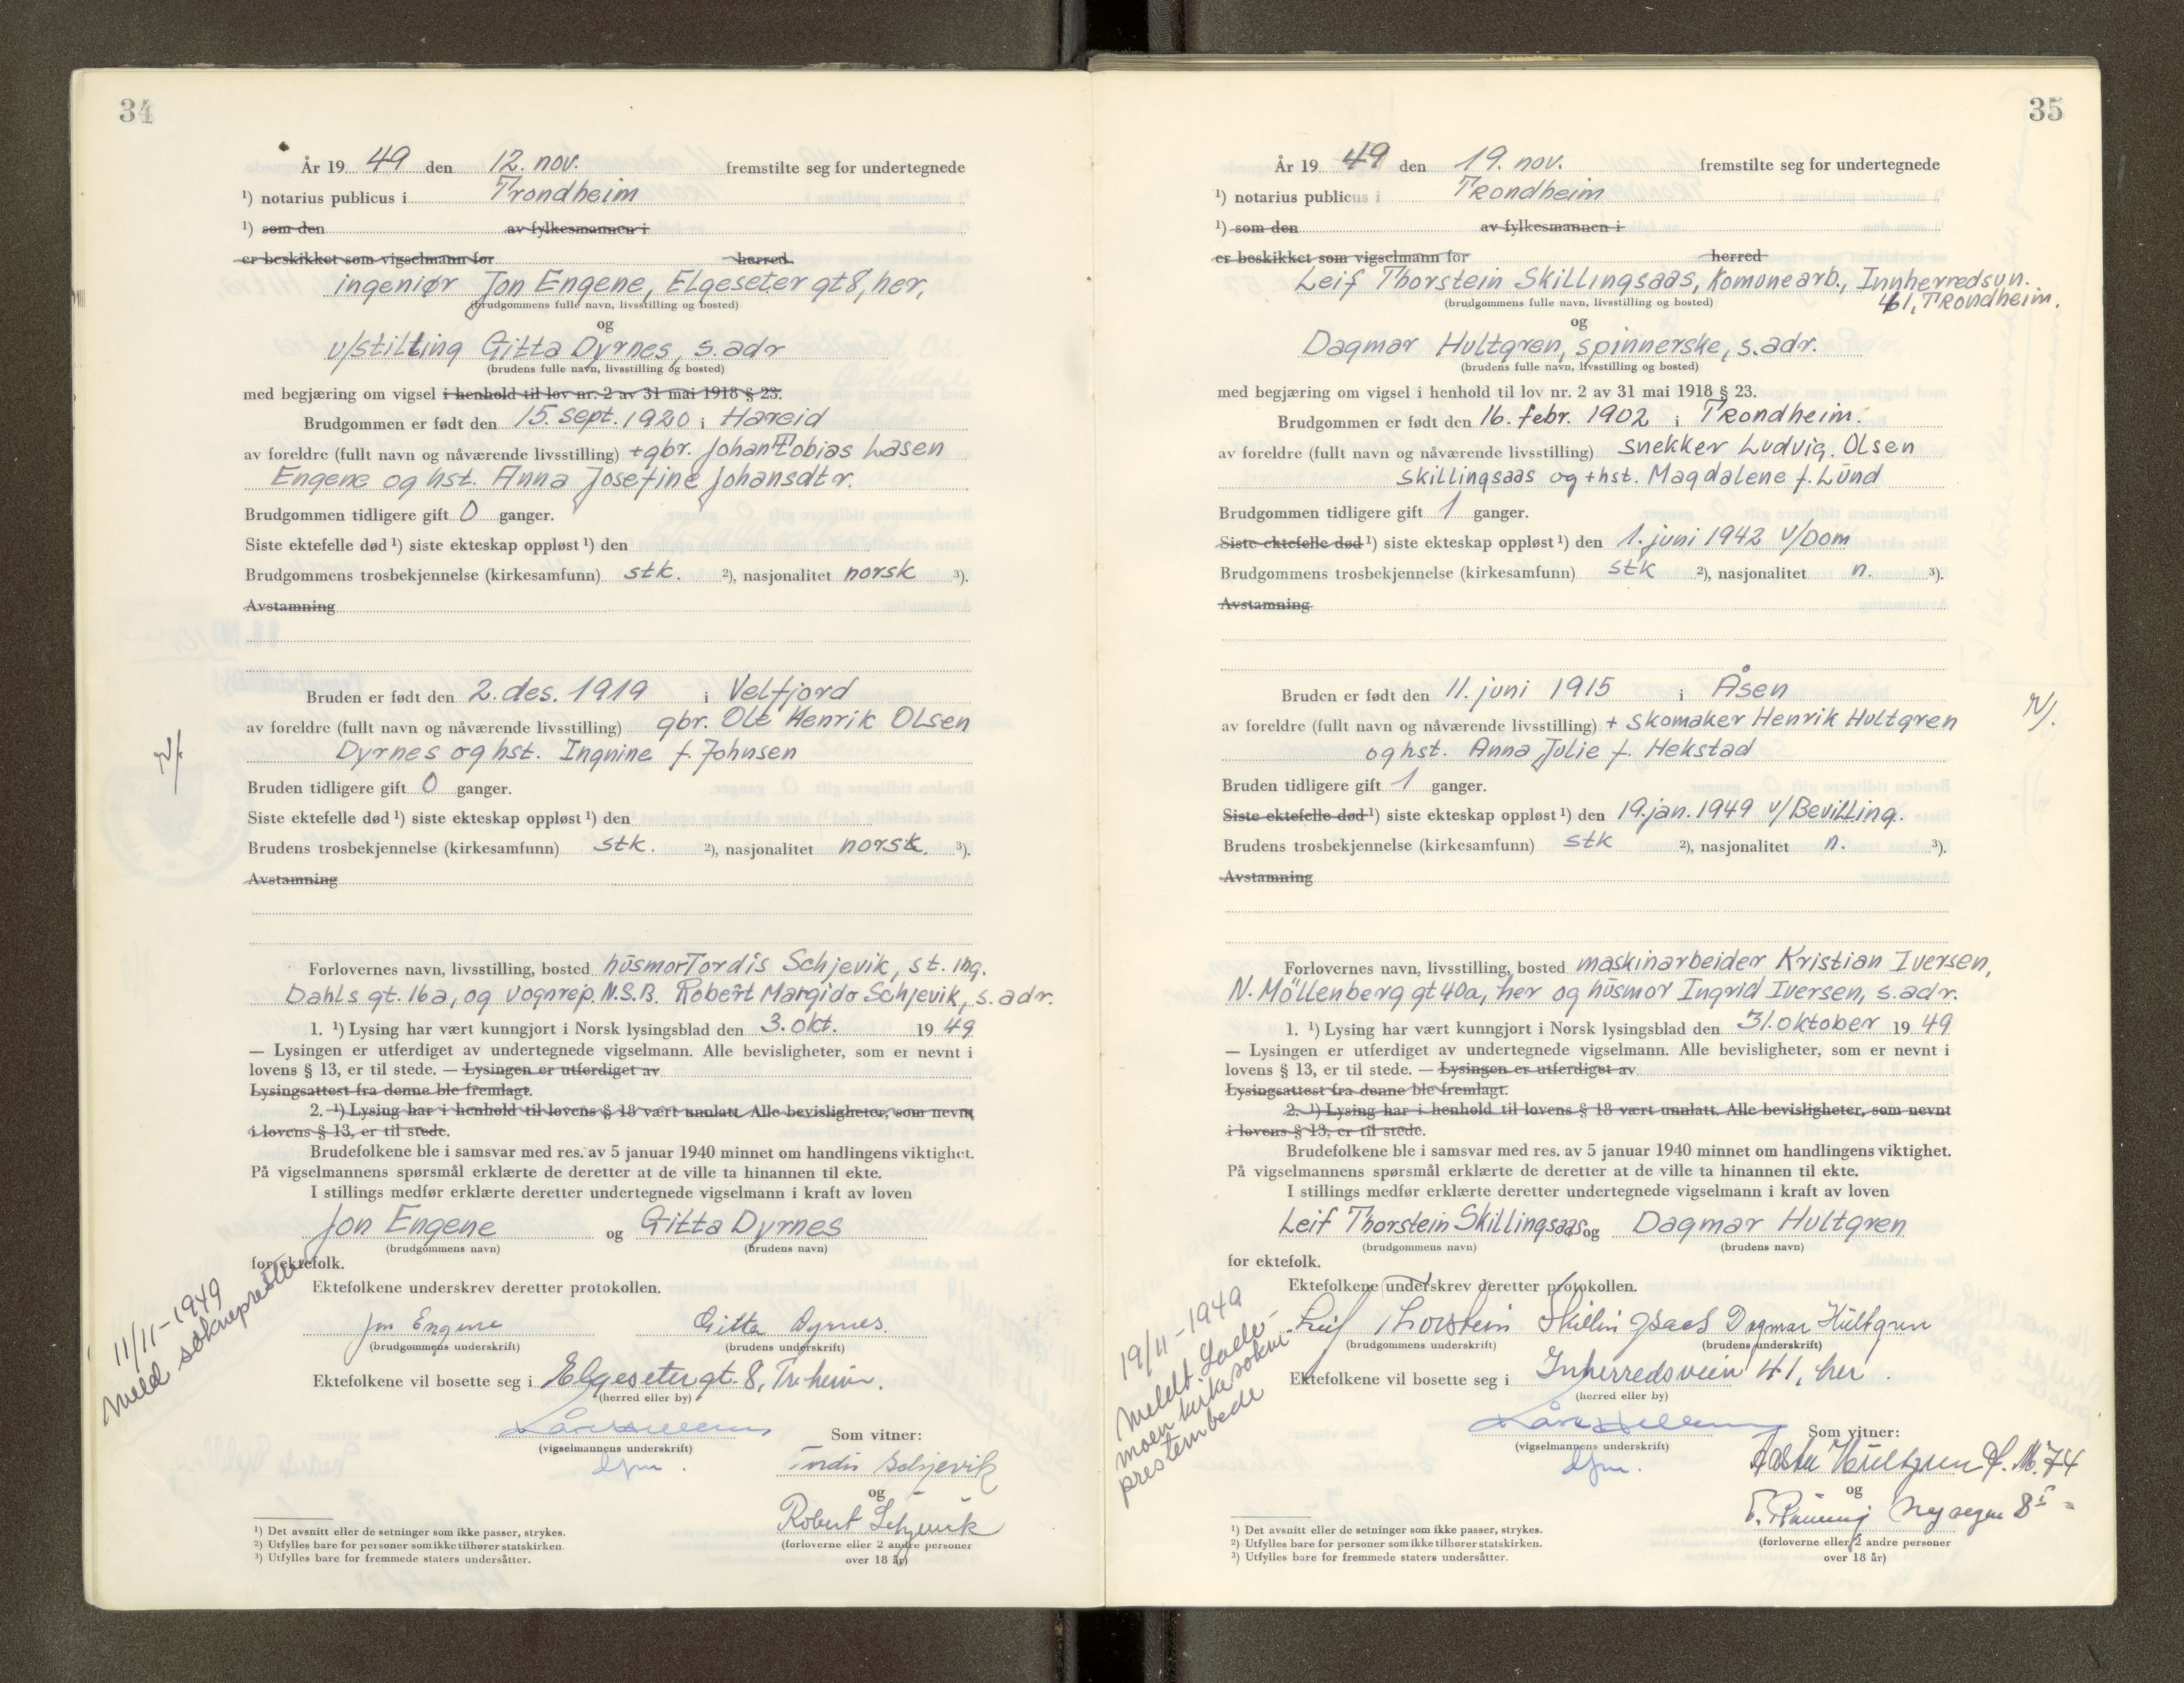 34
År 19 49 den 12. nov. fremstilte seg for undertegnede
¹) notarius publicus i Trondheim
¹) som den av fylkesmannen i
er beskikket som vigselmann for herred.
ingeniør Jon Engene, Elgeseter gt 8, her,
(brudgommens fulle navn, livsstilling og bosted)
og
u/stilling Gitta Dyrnes, s. adr
(brudens fulle navn, livsstilling og bosted)
med begjæring om vigsel i henhold til lov nr. 2 av 31 mai 1918 § 23.
Brudgommen er født den 15. sept. 1920 i Hareid
av foreldre (fullt navn og nåværende livsstilling) +gbr. Johan Tobias Lasen
Engene og hst. Anna Josefine Johansdtr.
Brudgommen tidligere gift 0 ganger.
Siste ektefelle død ¹) siste ekteskap oppløst ¹) den
Brudgommens trosbekjennelse (kirkesamfunn) stk. ²), nasjonalitet norsk ³).
Avstamning
Bruden er født den 2. des. 1919 i Velfjord
av foreldre (fullt navn og nåværende livsstilling) gbr. Ole Henrik Olsen
Dyrnes og hst. Ingnine f. Johnsen
Bruden tidligere gift 0 ganger.
Siste ektefelle død ¹) siste ekteskap oppløst ¹) den
Brudens trosbekjennelse (kirkesamfunn) stk. ²), nasjonalitet norsk. ³).
Avstamning
Forlovernes navn, livsstilling, bosted husmor Tordis Schjevik, st. ing.
Dahls gt. 16a, og vognrep. N.S.B. Robert Margido Schjevik, s. adr.
1. ¹) Lysing har vært kunngjort i Norsk lysingsblad den 3. okt. 19 49
— Lysingen er utferdiget av undertegnede vigselmann. Alle bevisligheter, som er nevnt i
lovens § 13, er til stede. — Lysingen er utferdiget av
Lysingsattest fra denne ble fremlagt.
2. ¹) Lysing har i henhold til lovens § 18 vært unnlatt. Alle bevisligheter, som nevnt
i lovens § 13, er til stede.
Brudefolkene ble i samsvar med res. av 5 januar 1940 minnet om handlingens viktighet.
På vigselmannens spørsmål erklærte de deretter at de ville ta hinannen til ekte.
I stillings medfør erklærte deretter undertegnede vigselmann i kraft av loven
Jon Engene og Gitta Dyrnes
(brudgommens navn) (brudens navn)
for ektefolk.
Ektefolkene underskrev deretter protokollen.
11/11-1949
Meld soknepresten
Jon Engene Gitta Dyrnes.
(brudgommens underskrift) (brudens underskrift)
Ektefolkene vil bosette seg i Elgeseter gt. 8, Tr.heim.
(herred eller by)
(vigselmannens underskrift)
Som vitner:
Tordis Schjevik
og
Robert Schjevik
(forloverne eller 2 andre personer
over 18 år)
¹) Det avsnitt eller de setninger som ikke passer, strykes.
²) Utfylles bare for personer som ikke tilhører statskirken.
³) Utfylles bare for fremmede staters undersåtter.
35
År 19 49 den 19. nov. fremstilte seg for undertegnede
¹) notarius publicus i Trondheim
¹) som den av fylkesmannen i
er beskikket som vigselmann for herred
Leif Thorstein Skillingsaas, Komunearb., Innherredsvn.
41, Trondheim.
(brudgommens fulle navn, livsstilling og bosted)
og
Dagmar Hultgren, spinnerske, s. adr.
(brudens fulle navn, livsstilling og bosted)
med begjæring om vigsel i henhold til lov nr. 2 av 31 mai 1918 § 23.
Brudgommen er født den 16. febr. 1902 i Trondheim.
av foreldre (fullt navn og nåværende livsstilling) snekker Ludvig. Olsen
Skillingsaas og +hst. Magdalene f. Lund
Brudgommen tidligere gift 1 ganger.
Siste ektefelle død ¹) siste ekteskap oppløst ¹) den 1. juni 1942 v/Dom
Brudgommens trosbekjennelse (kirkesamfunn) stk ²), nasjonalitet n. ³).
Avstamning
Bruden er født den 11. juni 1915 i Åsen
av foreldre (fullt navn og nåværende livsstilling) + skomaker Henrik Hultgren
og hst. Anna Julie f. Hekstad
Bruden tidligere gift 1 ganger.
Siste ektefelle død ¹) siste ekteskap oppløst ¹) den 19. jan. 1949 v/Bevilling.
Brudens trosbekjennelse (kirkesamfunn) stk ²), nasjonalitet n. ³).
Avstamning
Forlovernes navn, livsstilling, bosted maskinarbeider Kristian Iversen,
N. Möllenberg gt 40a, her og husmor Ingrid Iversen, s. adr.
1. ¹) Lysing har vært kunngjort i Norsk lysingsblad den 31. oktober 19 49
— Lysingen er utferdiget av undertegnede vigselmann. Alle bevisligheter, som er nevnt i
lovens § 13, er til stede. — Lysingen er utferdiget av
Lysingsattest fra denne ble fremlagt.
2. ¹) Lysing har i henhold til lovens § 18 vært unnlatt. Alle bevisligheter, som nevnt
i lovens § 13, er til stede.
Brudefolkene ble i samsvar med res. av 5 januar 1940 minnet om handlingens viktighet.
På vigselmannens spørsmål erklærte de deretter at de ville ta hinannen til ekte.
I stillings medfør erklærte deretter undertegnede vigselmann i kraft av loven
Leif Thorstein Skillingsaas og Dagmar Hultgren
(brudgommens navn) (brudens navn)
for ektefolk.
Ektefolkene underskrev deretter protokollen.
19/11-1949
Meldt Lade-
moen kirkesokne
prestembede
Leif Thorstein Skillingsaas Dagmar Hultgren
(brudgommens underskrift) (brudens underskrift)
Ektefolkene vil bosette seg i Inherredsveien 41, her.
(herred eller by)
(vigselmannens underskrift)
Som vitner:
Hultgren M. 74
og
8
(forloverne eller 2 andre personer
over 18 år)
¹) Det avsnitt eller de setninger som ikke passer, strykes.
²) Utfylles bare for personer som ikke tilhører statskirken.
³) Utfylles bare for fremmede staters undersåtter.